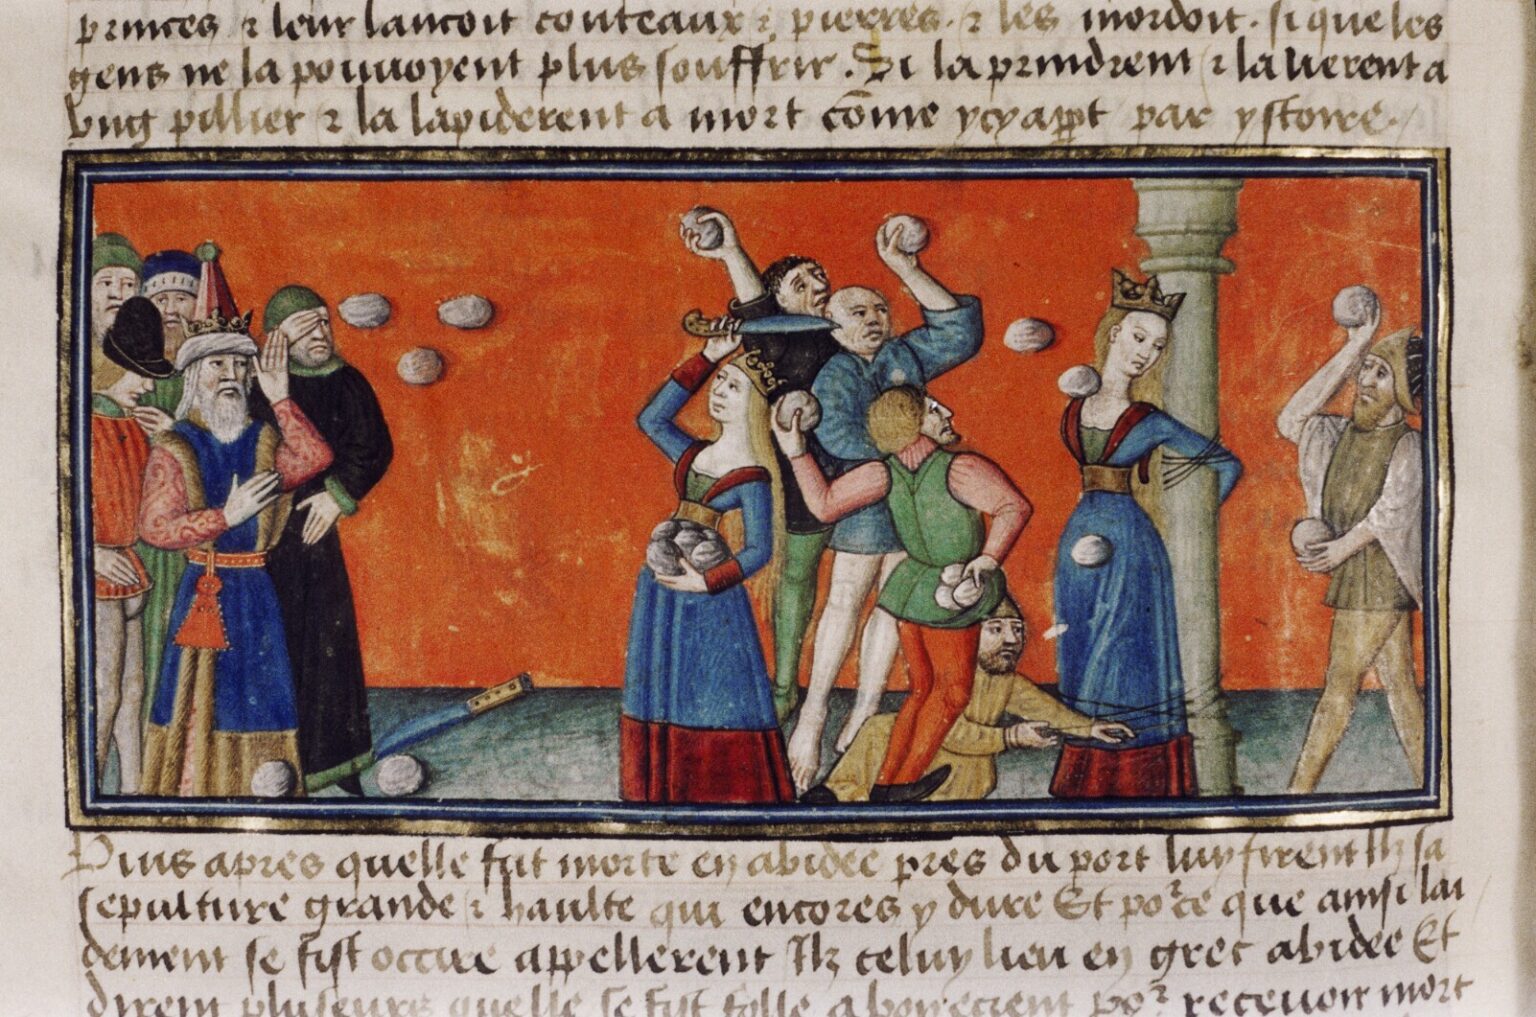 princes ⁊ leur lancoit couteaux ⁊ pierres. ⁊ les mordoit. si que les
gens ne la pouuoyent plus souffrir. Si la prindrent ⁊ la lierent a
vng pillier ⁊ la lapiderent a mort cōme ycy apꝑt par ystoire.
Puis apres quelle fut morte en abidee pres du port luy firent Ilz sa
sepulture grande ⁊ haulte qui encores y dure Et poʳ ce que ainsi lai
dement se fist occire appellerent Ilz celuy lieu en grec abidee Et
dirent plusieurs quelle se fist folle a bon escient poʳ receuoir mort